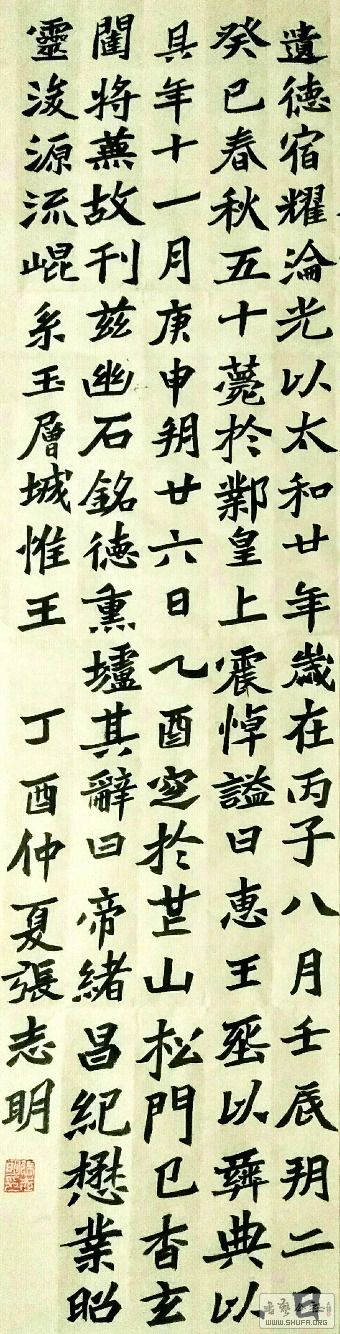 遺德宿耀淪光以太和廿年歲在丙子八月壬辰朔二日
癸巳春秋五十薨於鄴皇上震悼謚曰惠王葬以彝典以
其年十一月庚申朔廿六日乙酉窆於芒山松門已杳玄
闥將蕪故刊茲幽石銘德熏壚其辭曰帝緒昌紀懋業昭
靈浚源流崐系玉層城惟王 丁酉仲夏張志明
WWW.SHUFA.ORG